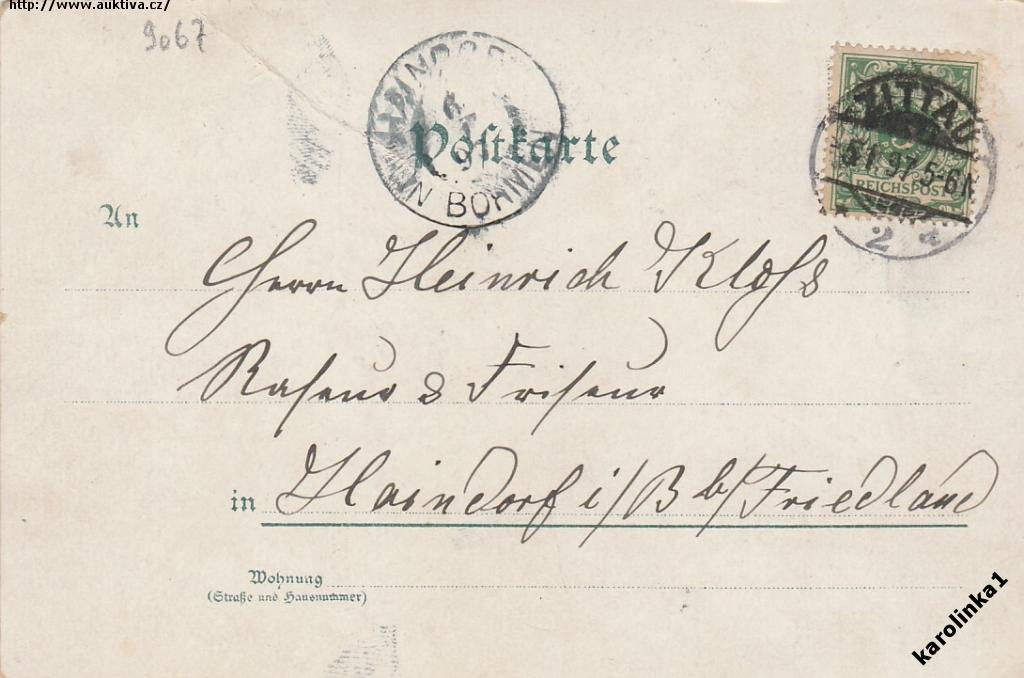 http://www.auktiva.cz/
9067
HAINDORF
IN BÖHMEN
Postkarte
ZITTAU
5 1 97 5-6N
REICHSPOST
2 a
An
Herrn Heinrich Kloss
Raseur & Friseur
in Haindorf i/B b/Friedland
Wohnung
(Straße und Hausnummer)
karolinka1